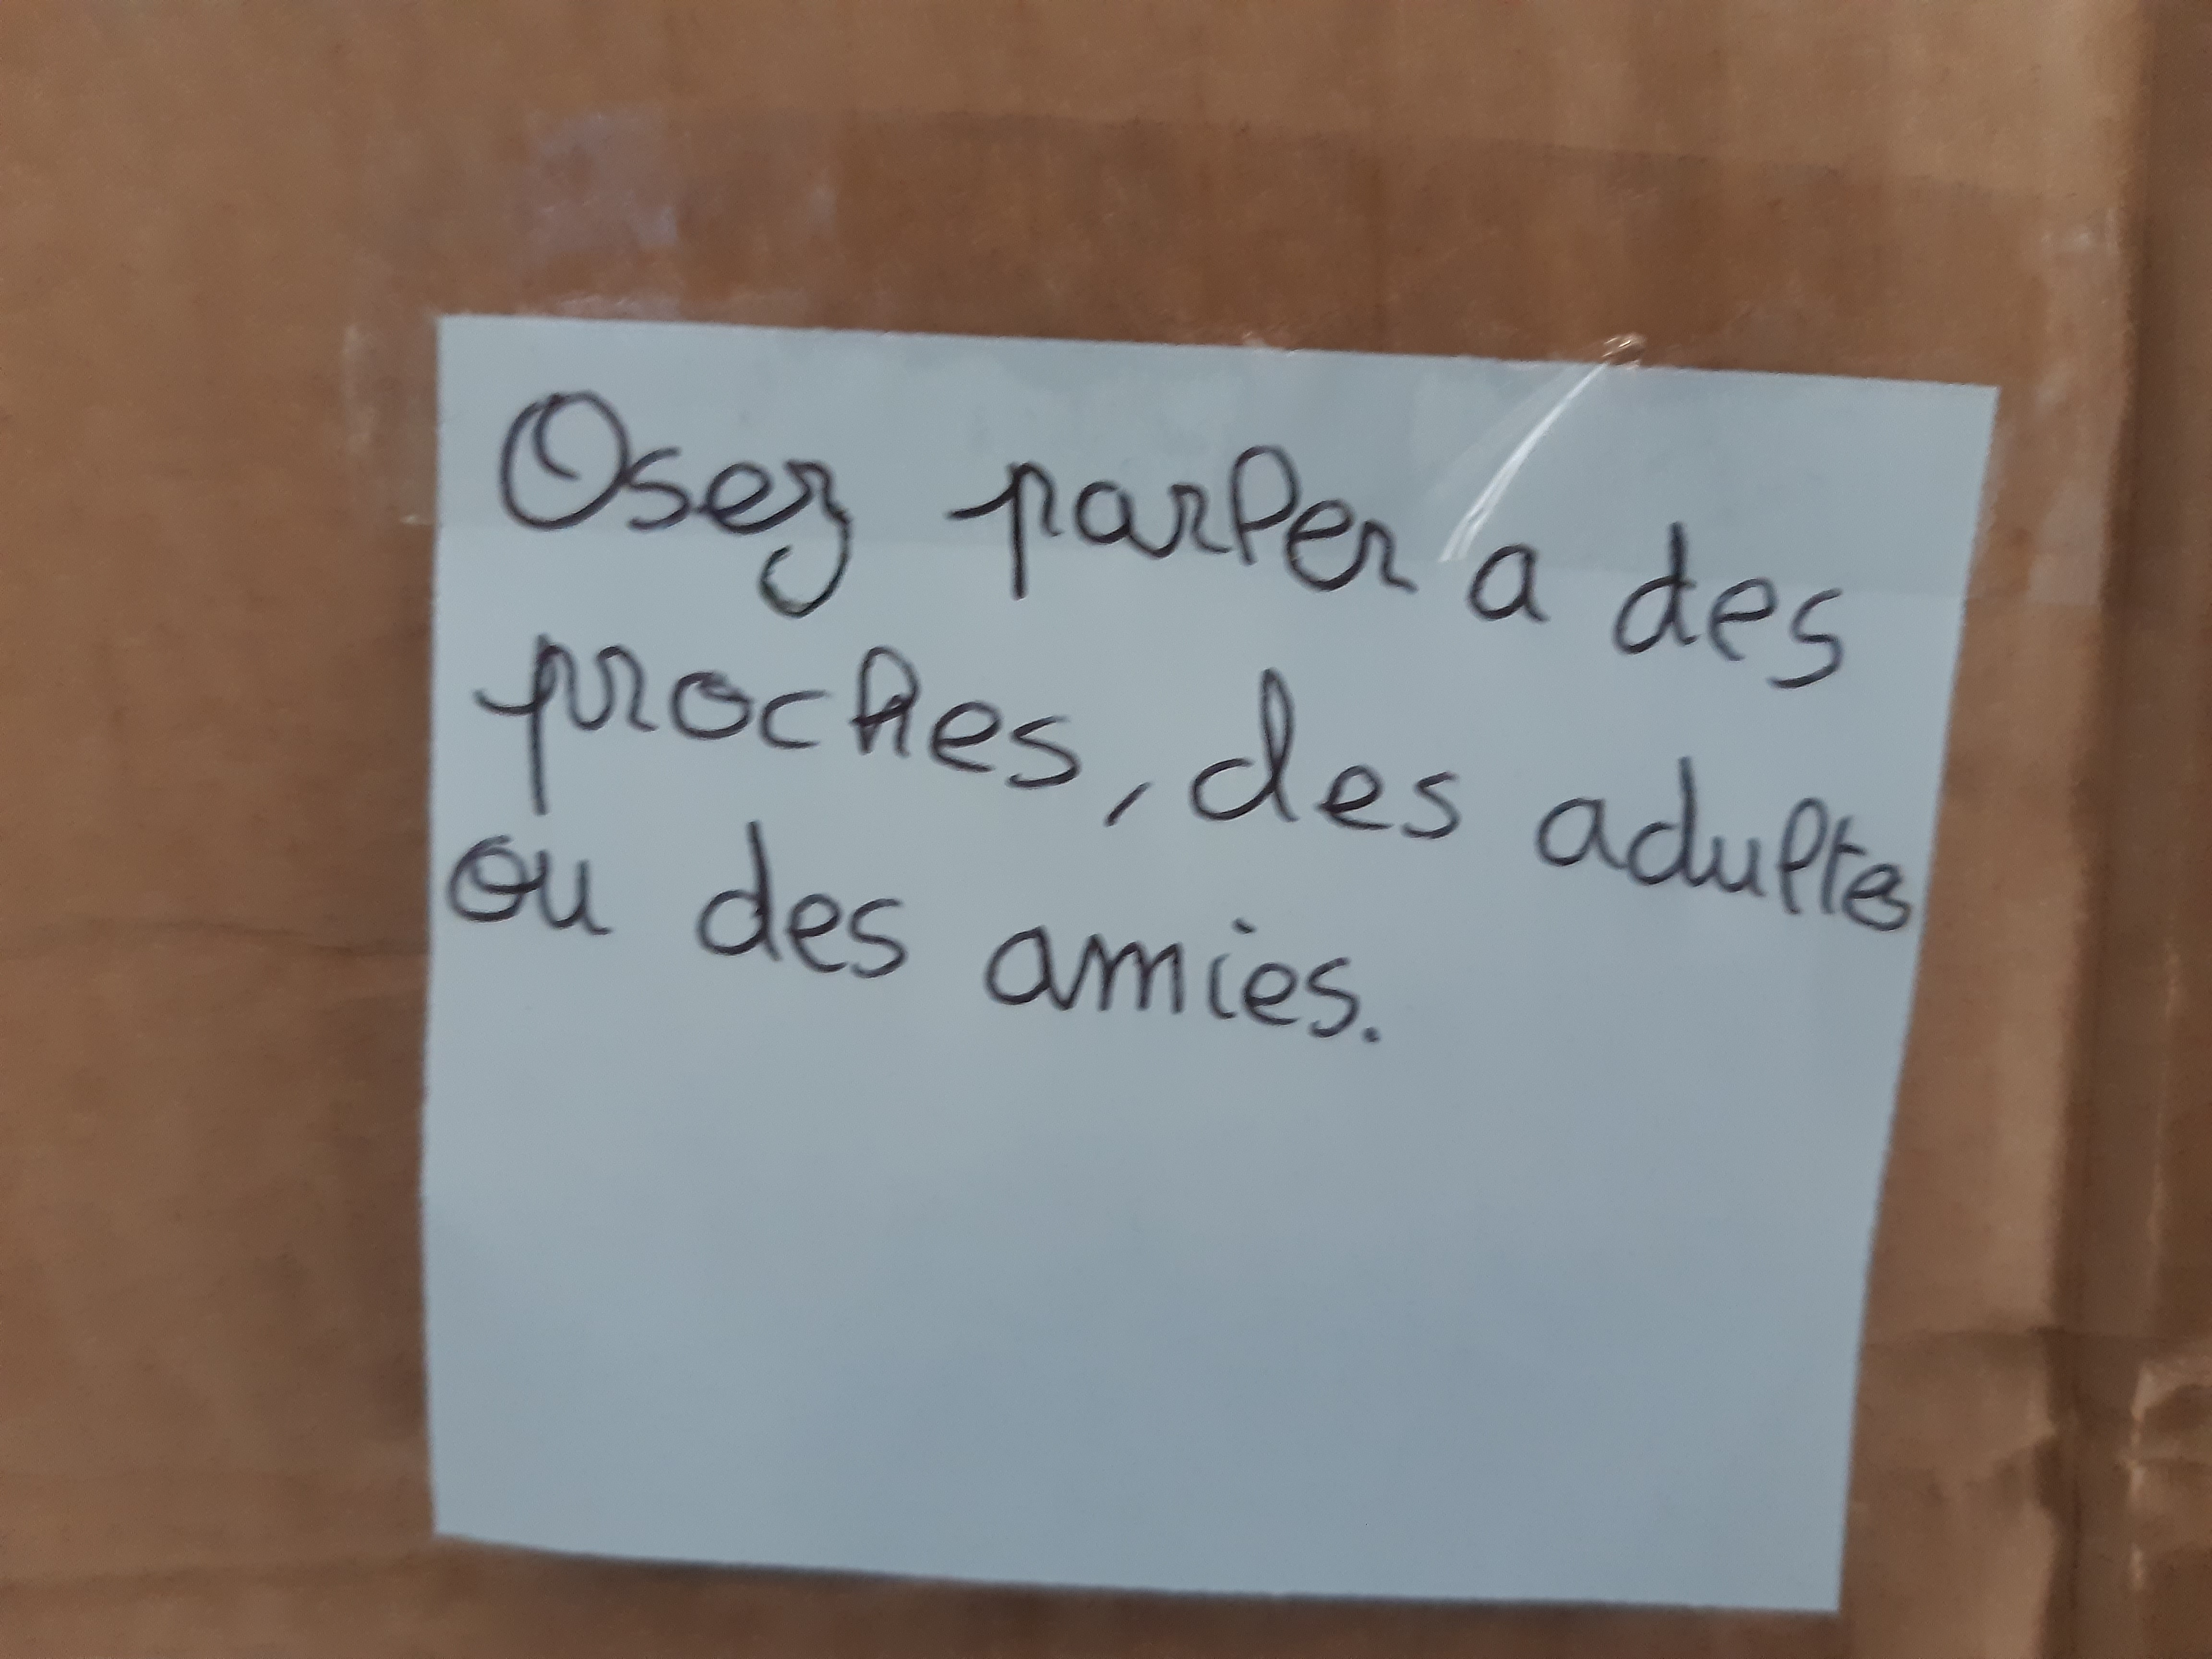 Osez parler a des
proches, des adultes
ou des amies.